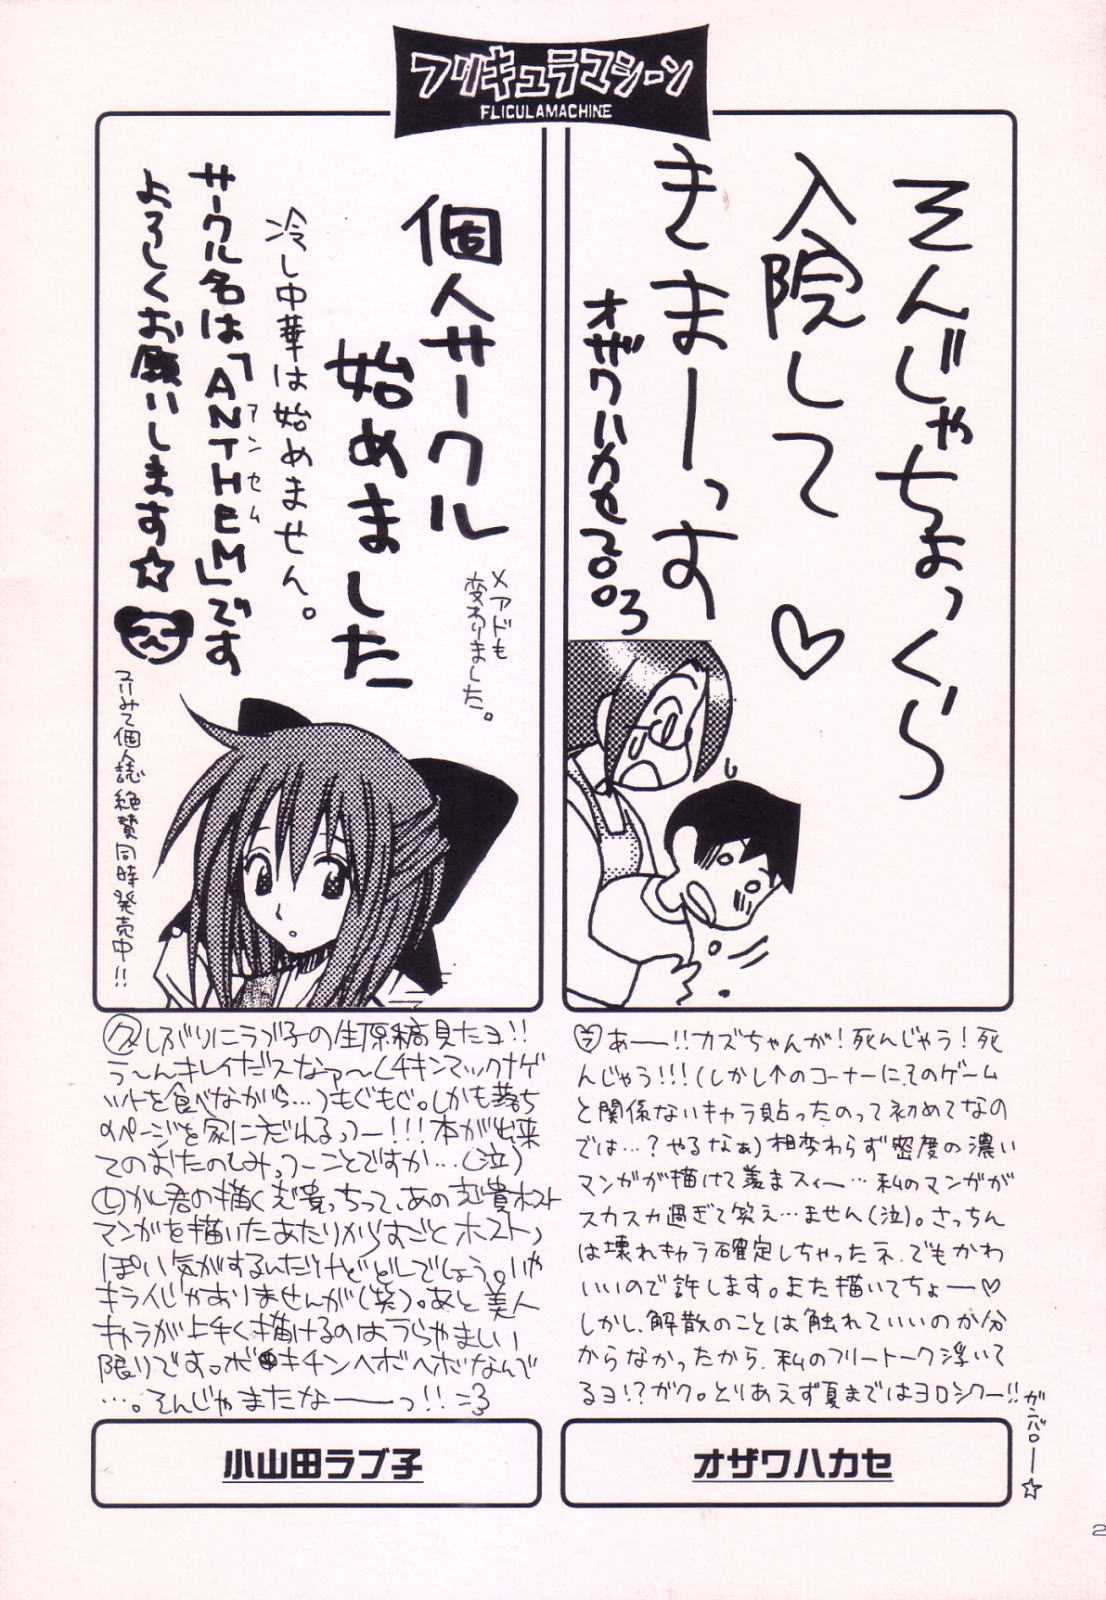 フリキュラマシーン
FLICULAMACHINE
そんじゃちょっくら
入院して
きまーっす
♡
オザワハカセ2003
個人サークル
始めました
メアドも
変わりました。
冷し中華は始めません。
サークル名は「ANTHEM」です
アンセム
よろしくお願いします☆
フリみて個人誌絶賛同時発売中!!
あー!!カズちゃんが!死んじゃう!死
んじゃう!!!(しかし↑のコーナーに、そのゲーム
と関係ないキャラ貼ったのって初めてなの
では…?やるなぁ)相変わらず密度の濃い
マンガが描けて羨まスィー…私のマンガが
スカスカ過ぎて笑え…ません(泣)。さっちん
は壊れキャラ確定しちゃったネ、でもかわ
いいので許します。また描いてちょー♡
しかし、解散のことは触れていいのか分
からなかったから、私のフリートーク浮いて
るヨ!?ガク。とりあえず夏まではヨロシクー!!
ガンバロー☆
しぶりにラブ子の生原稿見たヨ!!
う〜んキレイだスなァ〜(チキンマックナゲ
ットを食べながら…)もぐもぐ。しかも落ち
のページを家に忘れるっつー!!!本が出来
てのおたのしみっつーことですか…(泣)
しかし君の描く志貴っちって、あの志貴ホスト
マンガを描いたあたりからすごくホストっ
ぽい気がするんだけどどーでしょう。いや
キライじゃありませんが(笑)。あと美人
キャラが上手く描けるのはうらやましい
限りです。ボキチンヘボヘボなんで
…。そんじゃまたなーっ!!
小山田ラブ子
オザワハカセ
2